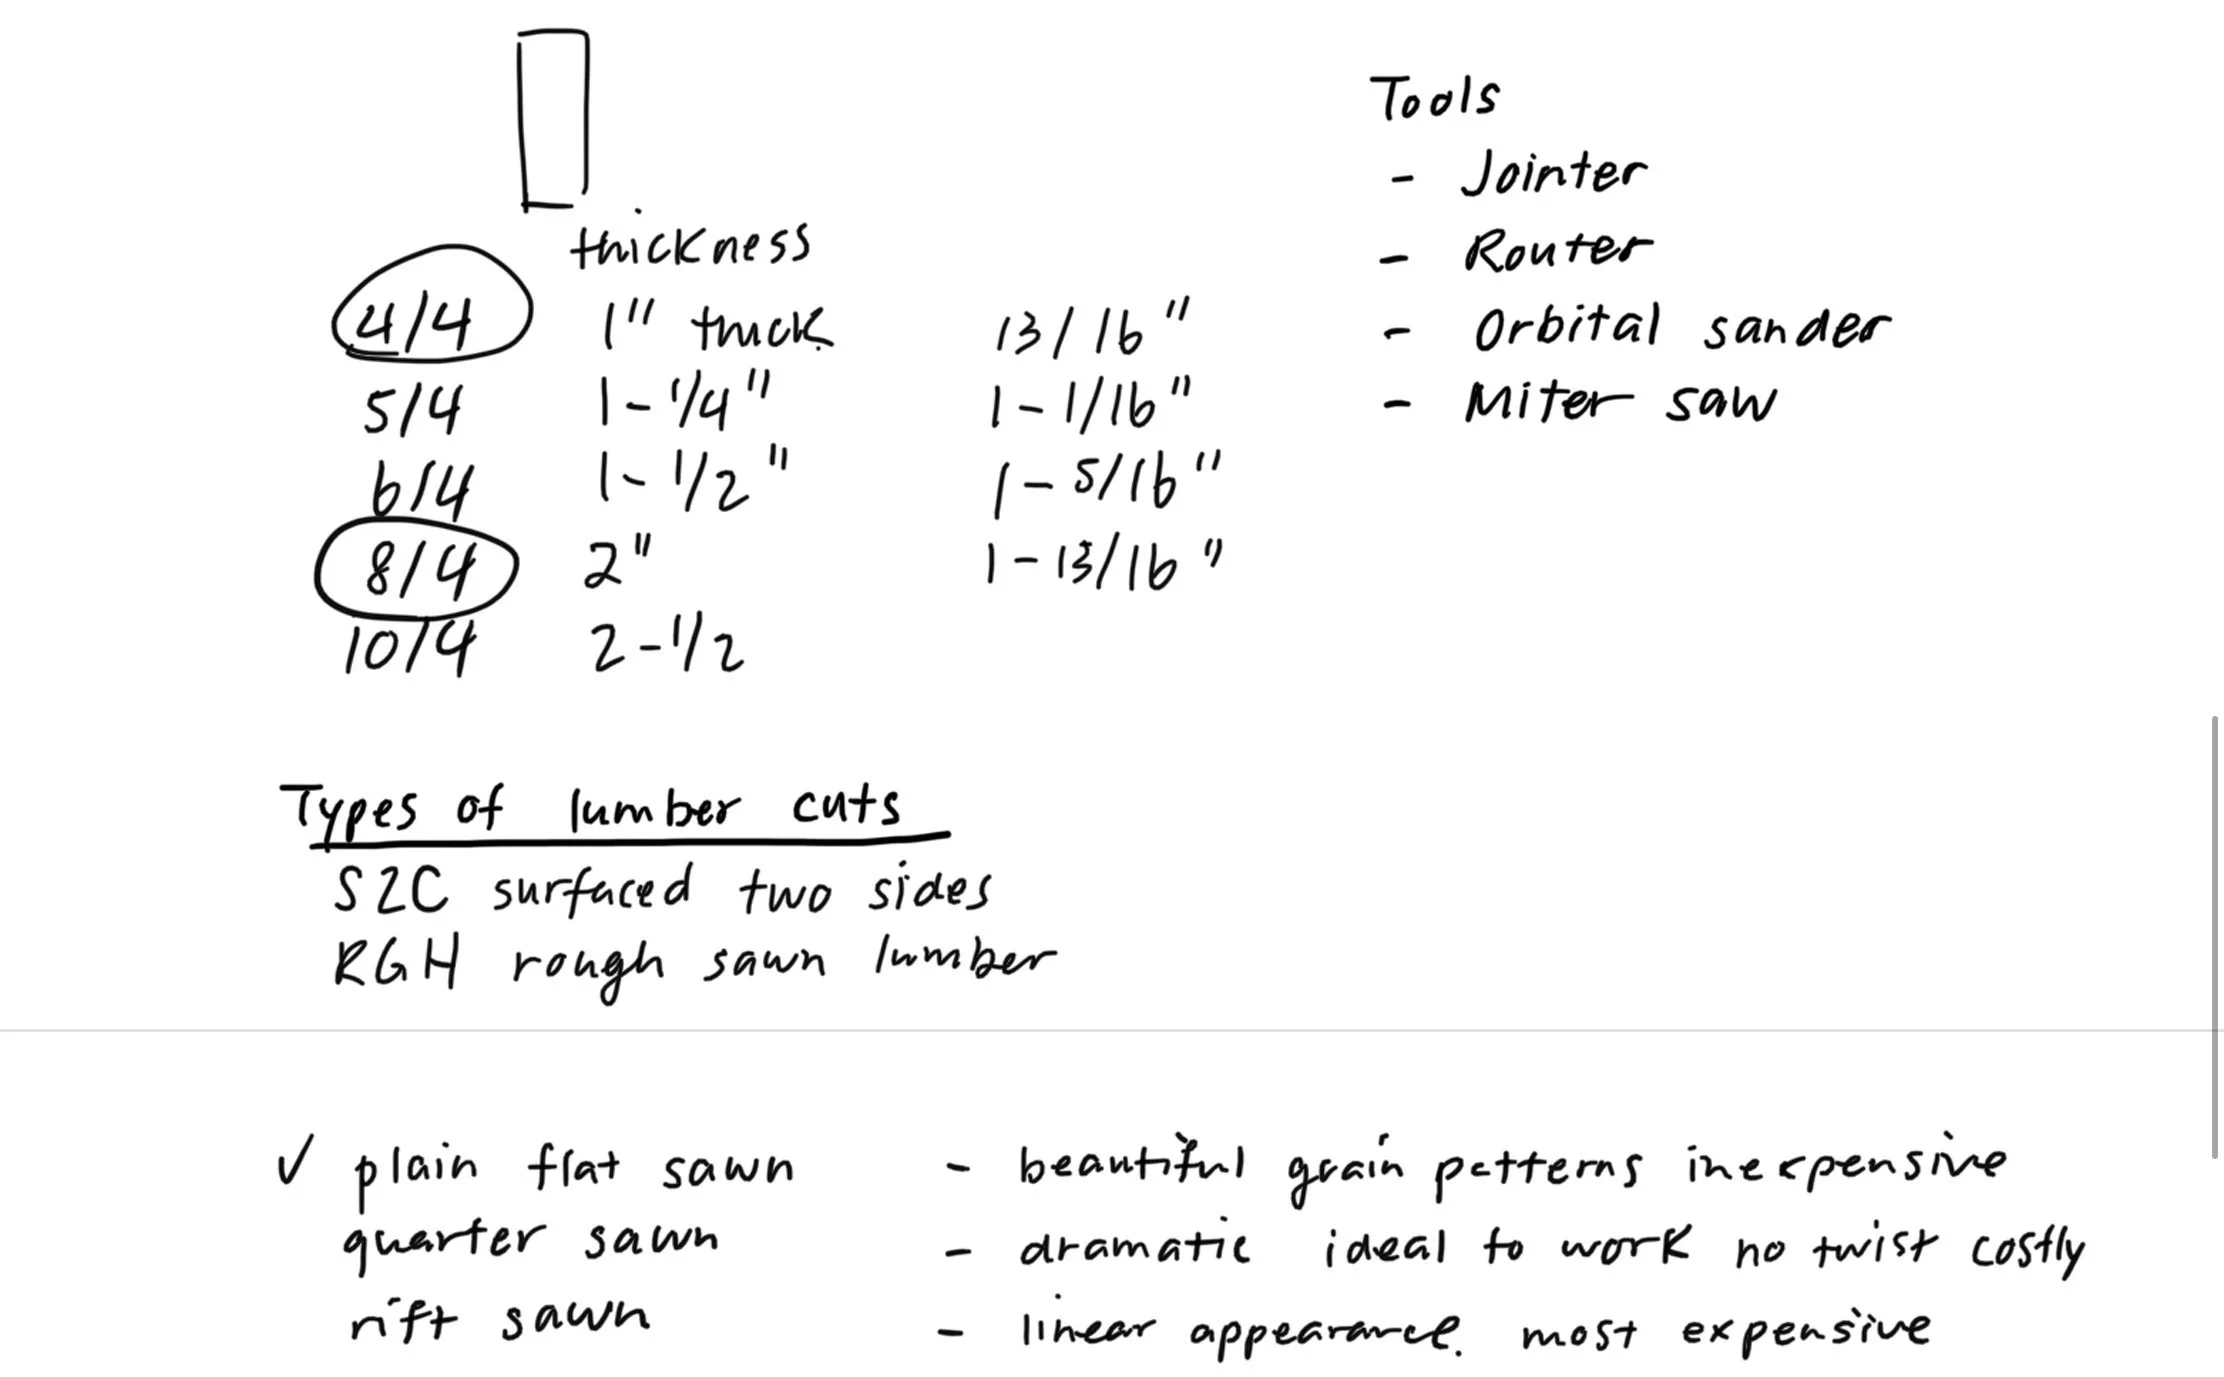 thickness
4/4 1" thick. 13/16"
5/4 1-1/4" 1-1/16"
6/4 1-1/2" 1-5/16"
8/4 2" 1-13/16"
10/4 2-1/2
Tools
- Jointer
- Router
- Orbital sander
- Miter saw
Types of lumber cuts
S2C surfaced two sides
RGH rough sawn lumber
✓ plain flat sawn - beautiful grain patterns inexpensive
quarter sawn - dramatic ideal to work no twist costly
rift sawn - linear appearance. most expensive